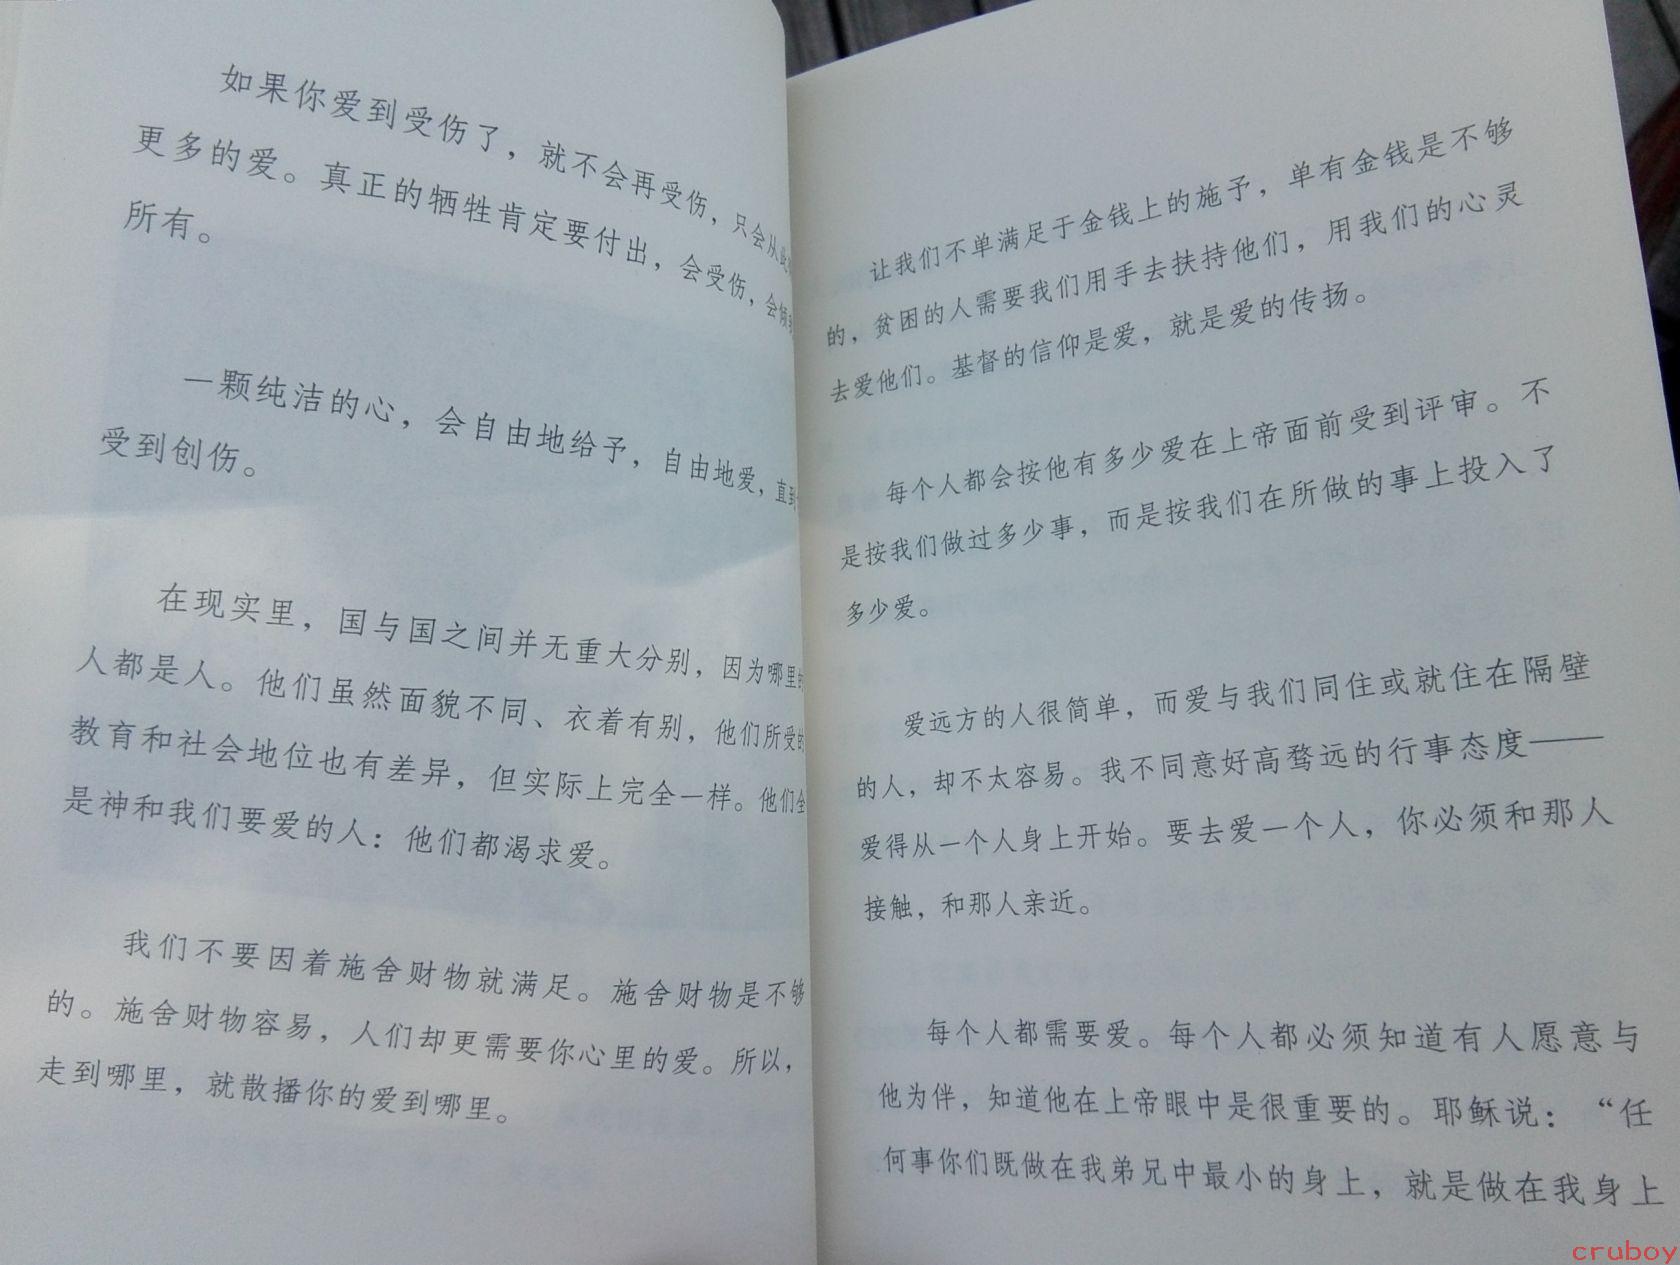 如果你爱到受伤了，就不会再受伤，只会从此
更多的爱。真正的牺牲肯定要付出，会受伤，会倾
所有。
一颗纯洁的心，会自由地给予，自由地爱，直到
受到创伤。
在现实里，国与国之间并无重大分别，因为哪里的
人都是人。他们虽然面貌不同、衣着有别，他们所受的
教育和社会地位也有差异，但实际上完全一样。他们全
是神和我们要爱的人：他们都渴求爱。
我们不要因着施舍财物就满足。施舍财物是不够
的。施舍财物容易，人们却更需要你心里的爱。所以，
走到哪里，就散播你的爱到哪里。
让我们不单满足于金钱上的施予，单有金钱是不够
的，贫困的人需要我们用手去扶持他们，用我们的心灵
去爱他们。基督的信仰是爱，就是爱的传扬。
每个人都会按他有多少爱在上帝面前受到评审。不
是按我们做过多少事，而是按我们在所做的事上投入了
多少爱。
爱远方的人很简单，而爱与我们同住或就住在隔壁
的人，却不太容易。我不同意好高骛远的行事态度——
爱得从一个人身上开始。要去爱一个人，你必须和那人
接触，和那人亲近。
每个人都需要爱。每个人都必须知道有人愿意与
他为伴，知道他在上帝眼中是很重要的。耶稣说：“任
何事你们既做在我弟兄中最小的身上，就是做在我身上
cruboy